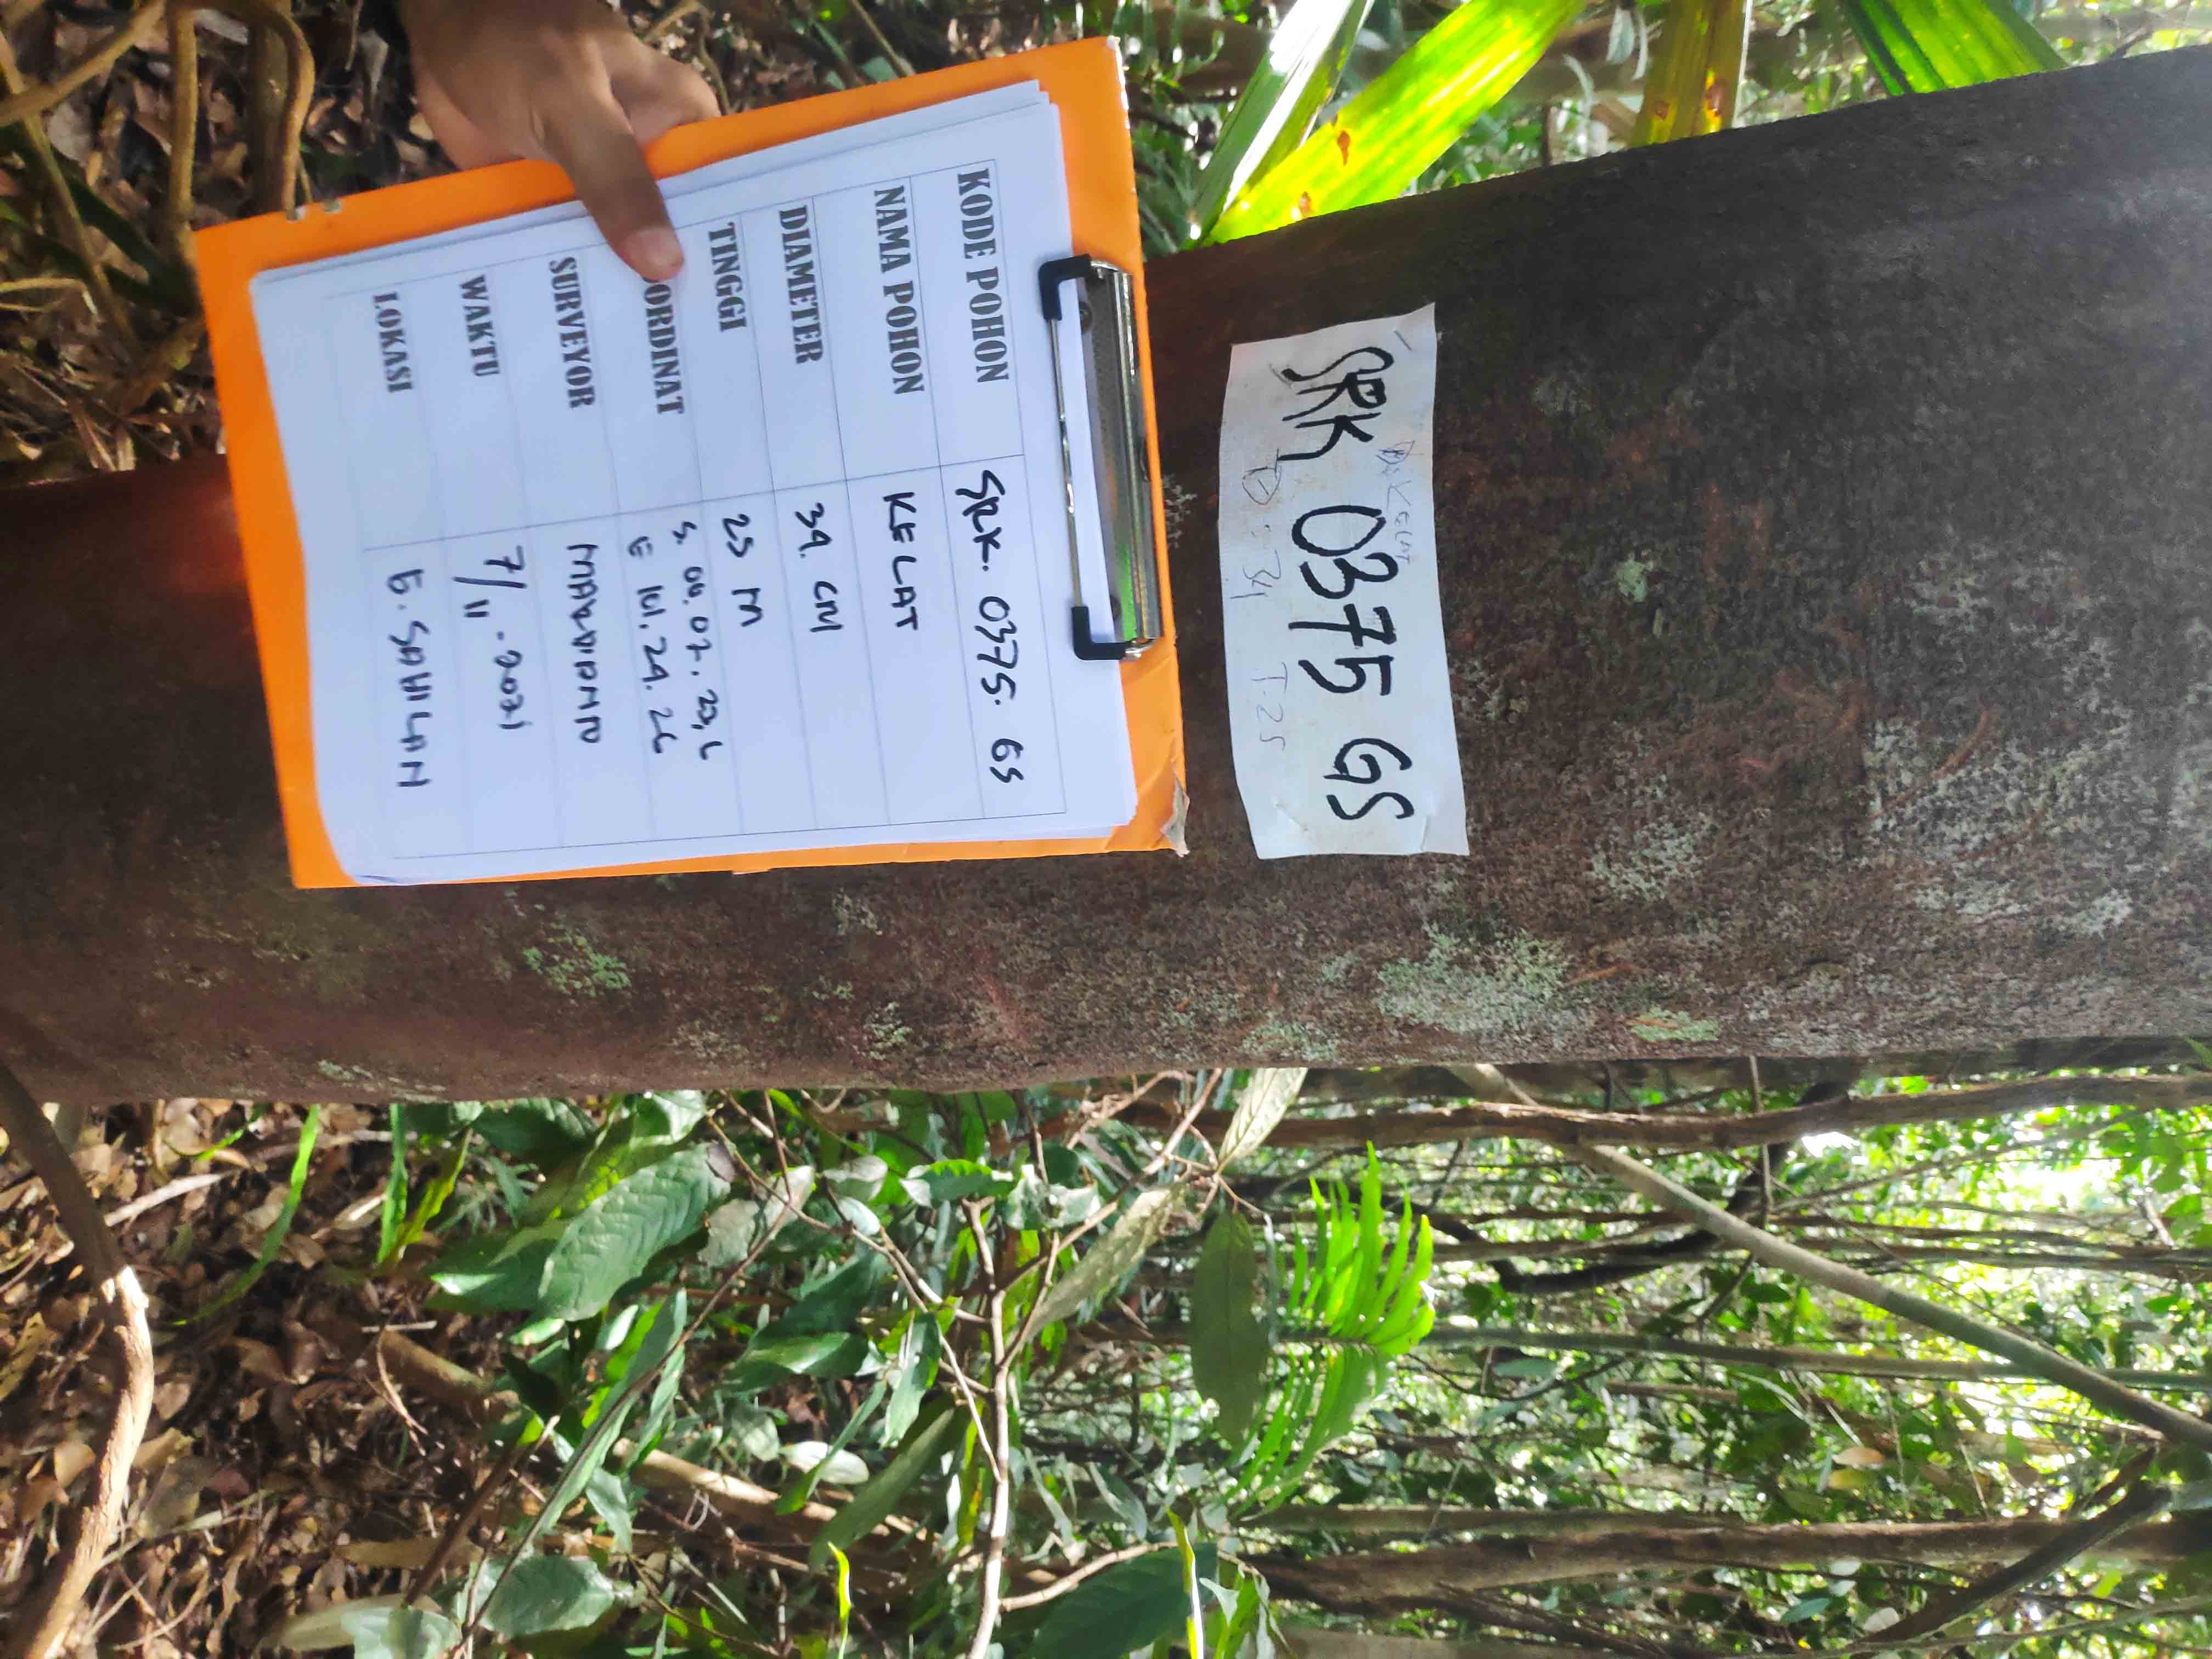 D. KELAT
SRK 0375 GS
D : 34 T. 25
KODE POHON SRK. 0375. GS
NAMA POHON KELAT
DIAMETER 34. CM
TINGGI 25 M
OORDINAT S. 00. 07. 23, 6
E 101. 24. 26
SURVEYOR MARDIANTO
WAKTU 7/11 - 2021
LOKASI G. SAHILAN